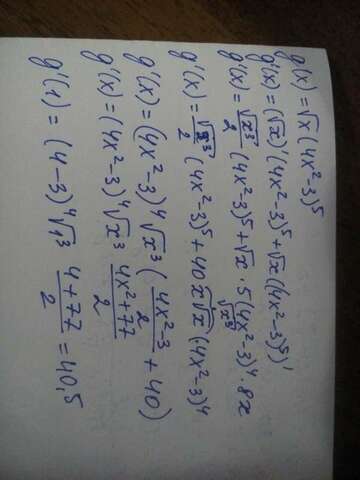 g(x) = √x (4x²-3)⁵
g'(x) = (√x)'(4x²-3)⁵ + √x((4x²-3)⁵)'
g'(x) = √x³/2 (4x²-3)⁵ + √x · 5(4x²-3)⁴ · 8x
g'(x) = √x³/2 (4x²-3)⁵ + 40x√x (4x²-3)⁴
√x³
g'(x) = (4x²-3)⁴ √x³ (4x²-3/2 + 40)
g'(x) = (4x²-3)⁴ √x³ 4x²+77/2
g'(1) = (4-3)⁴ √1³ 4+77/2 = 40,5